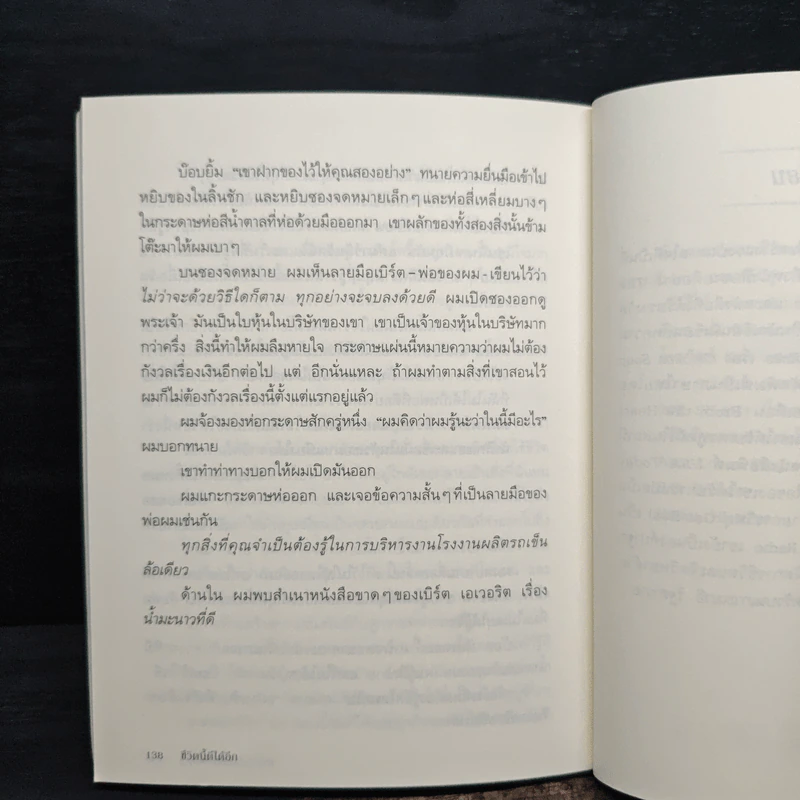 บ๊อบยิ้ม “เขาฝากของไว้ให้คุณสองอย่าง” ทนายความยื่นมือเข้าไป
หยิบของในลิ้นชัก และหยิบซองจดหมายเล็กๆ และห่อสี่เหลี่ยมบางๆ
ในกระดาษห่อสีน้ำตาลที่ห่อด้วยมือออกมา เขาผลักของทั้งสองสิ่งนั้นข้าม
โต๊ะมาให้ผมเบาๆ
บนซองจดหมาย ผมเห็นลายมือเบิร์ต-พ่อของผม-เขียนไว้ว่า
ไม่ว่าจะด้วยวิธีใดก็ตาม ทุกอย่างจะจบลงด้วยดี ผมเปิดซองออกดู
พระเจ้า มันเป็นใบหุ้นในบริษัทของเขา เขาเป็นเจ้าของหุ้นในบริษัทมาก
กว่าครึ่ง สิ่งนี้ทำให้ผมลืมหายใจ กระดาษแผ่นนี้หมายความว่าผมไม่ต้อง
กังวลเรื่องเงินอีกต่อไป แต่ อีกนั่นแหละ ถ้าผมทำตามสิ่งที่เขาสอนไว้
ผมก็ไม่ต้องกังวลเรื่องนี้ตั้งแต่แรกอยู่แล้ว
ผมจ้องมองห่อกระดาษสักครู่หนึ่ง “ผมคิดว่าผมรู้นะว่าในนี้มีอะไร”
ผมบอกทนาย
เขาทำท่าทางบอกให้ผมเปิดมันออก
ผมแกะกระดาษห่อออก และเจอข้อความสั้นๆ ที่เป็นลายมือของ
พ่อผมเช่นกัน
ทุกสิ่งที่คุณจำเป็นต้องรู้ในการบริหารงานโรงงานผลิตรถเข็น
ล้อเดียว
ด้านใน ผมพบสำเนาหนังสือขาดๆ ของเบิร์ต เอเวอริต เรื่อง
น้ำมะนาวที่ดี
138 ชีวิตนี้ดีได้อีก